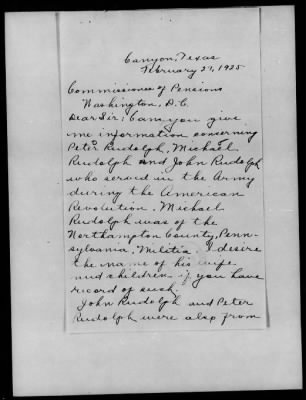 Canyon, Texas
February 27, 1925
Commissioner of Pensions
Washington, D.C.
Dear Sir; Can you give
me information concerning
Peter Rudolph, Michael
Rudolph and John Rudolph
who served in the Army
during the American
Revolution. Michael
Rudolph was of the
Northampton County, Penn-
sylvania, Militia. I desire
the name of his wife
and children if you have
record of such.
John Rudolph and Peter
Rudolph were also from